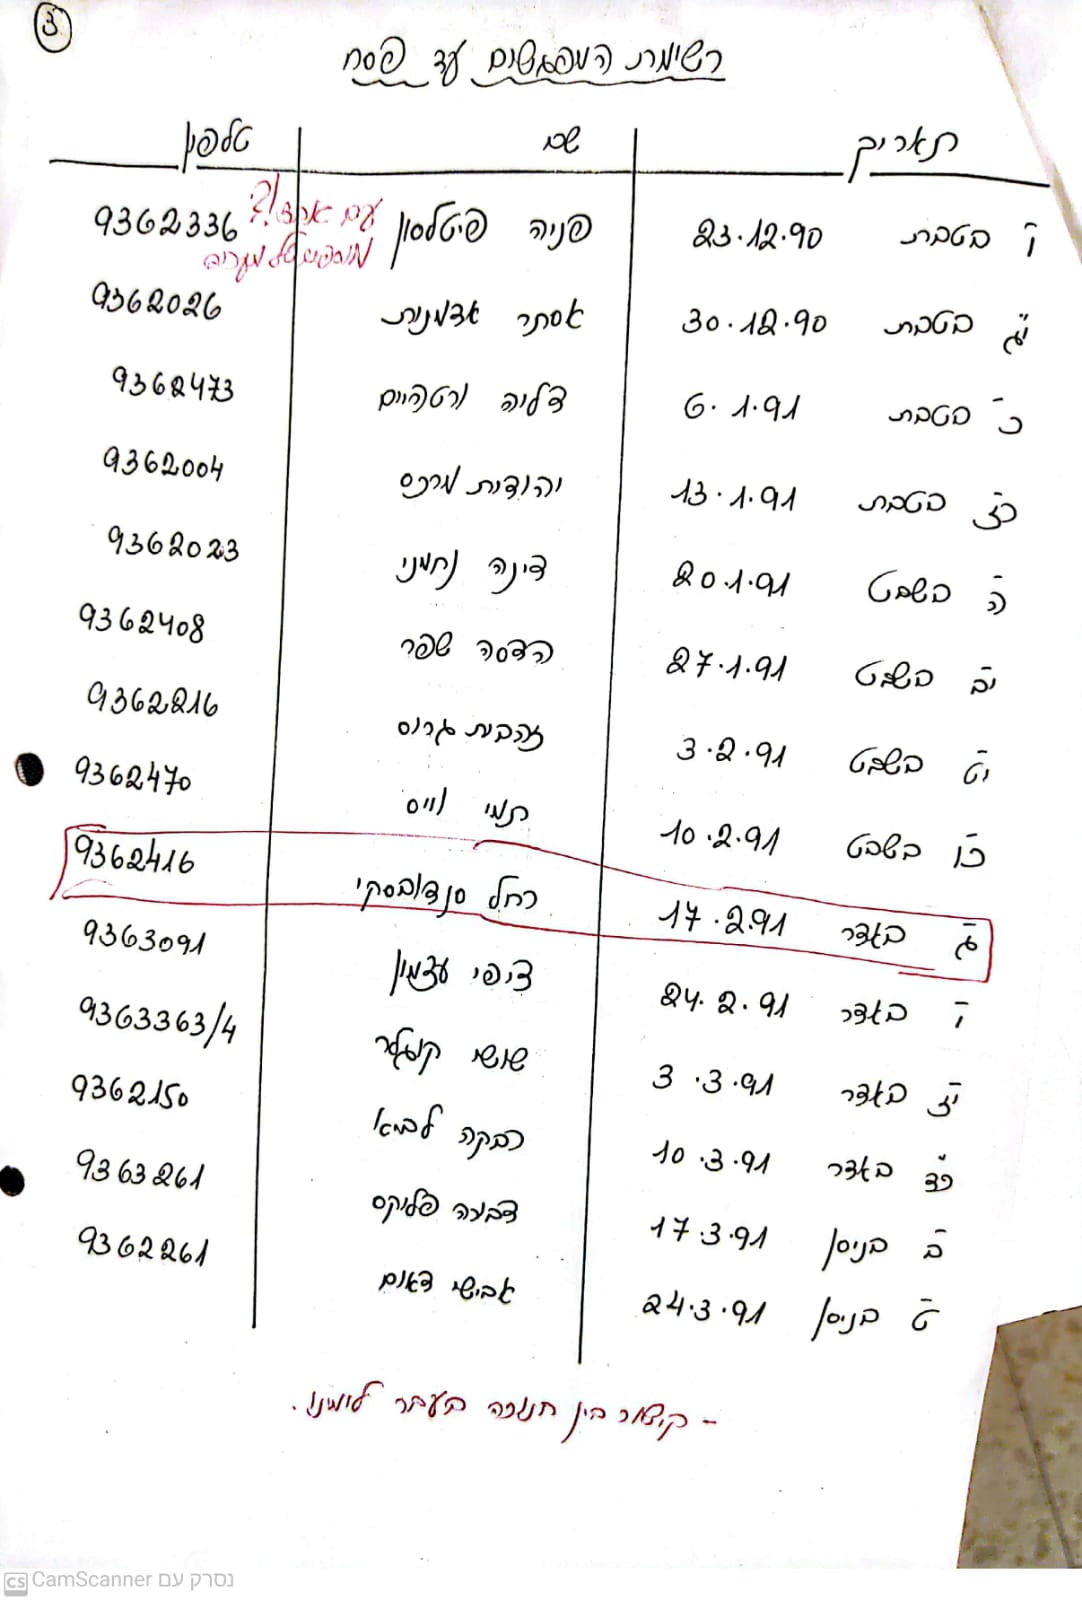 3
רשימת המפגשים עד פסח
תאריך שם טלפון
ו' בטבת 23.12.90 פניה פיטלסון עם ארצי!? 9362336
מוספים של מעריב
י"ג בטבת 30.12.90 אסתר אדמנית 9362026
כ' בטבת 6.1.91 דליה ורטהיים 9362473
כז בטבת 13.1.91 יהודית מרכס 9362004
ה' בשבט 20.1.91 דינה נחמני 9362023
יב בשבט 27.1.91 הדסה שפר 9362408
יט בשבט 3.2.91 זהבית גרוס 9362216
כו בשבט 10.2.91 תמי וייס 9362470
ג' באדר 17.2.91 רחל סנדובסקי 9362416
י' באדר 24.2.91 ציפי עצמון 9363091
יז באדר 3.3.91 שושי קוגלר 9363363/4
כד באדר 10.3.91 רבקה לביא 9362150
ב' בניסן 17.3.91 דבורה פליקס 9363261
ט' בניסן 24.3.91 אבישי דאום 9362261
- קישור בין חנוכה בעבר לימינו.
CS CamScanner נסרק עם